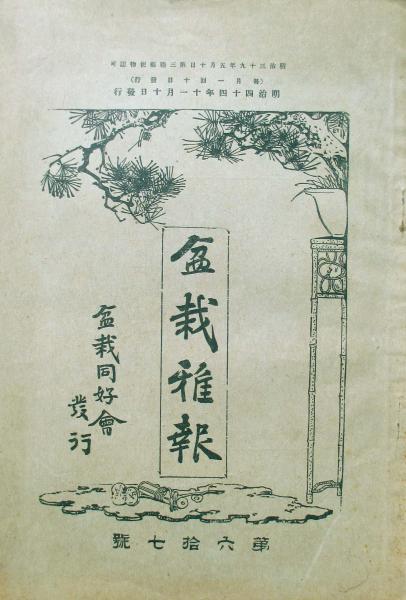 明治三十九年五月十日第三種郵便物認可
(毎月一回十日發行)
明治四十四年十一月十日發行
盆栽雅報
盆栽同好會
發行
第六拾七號